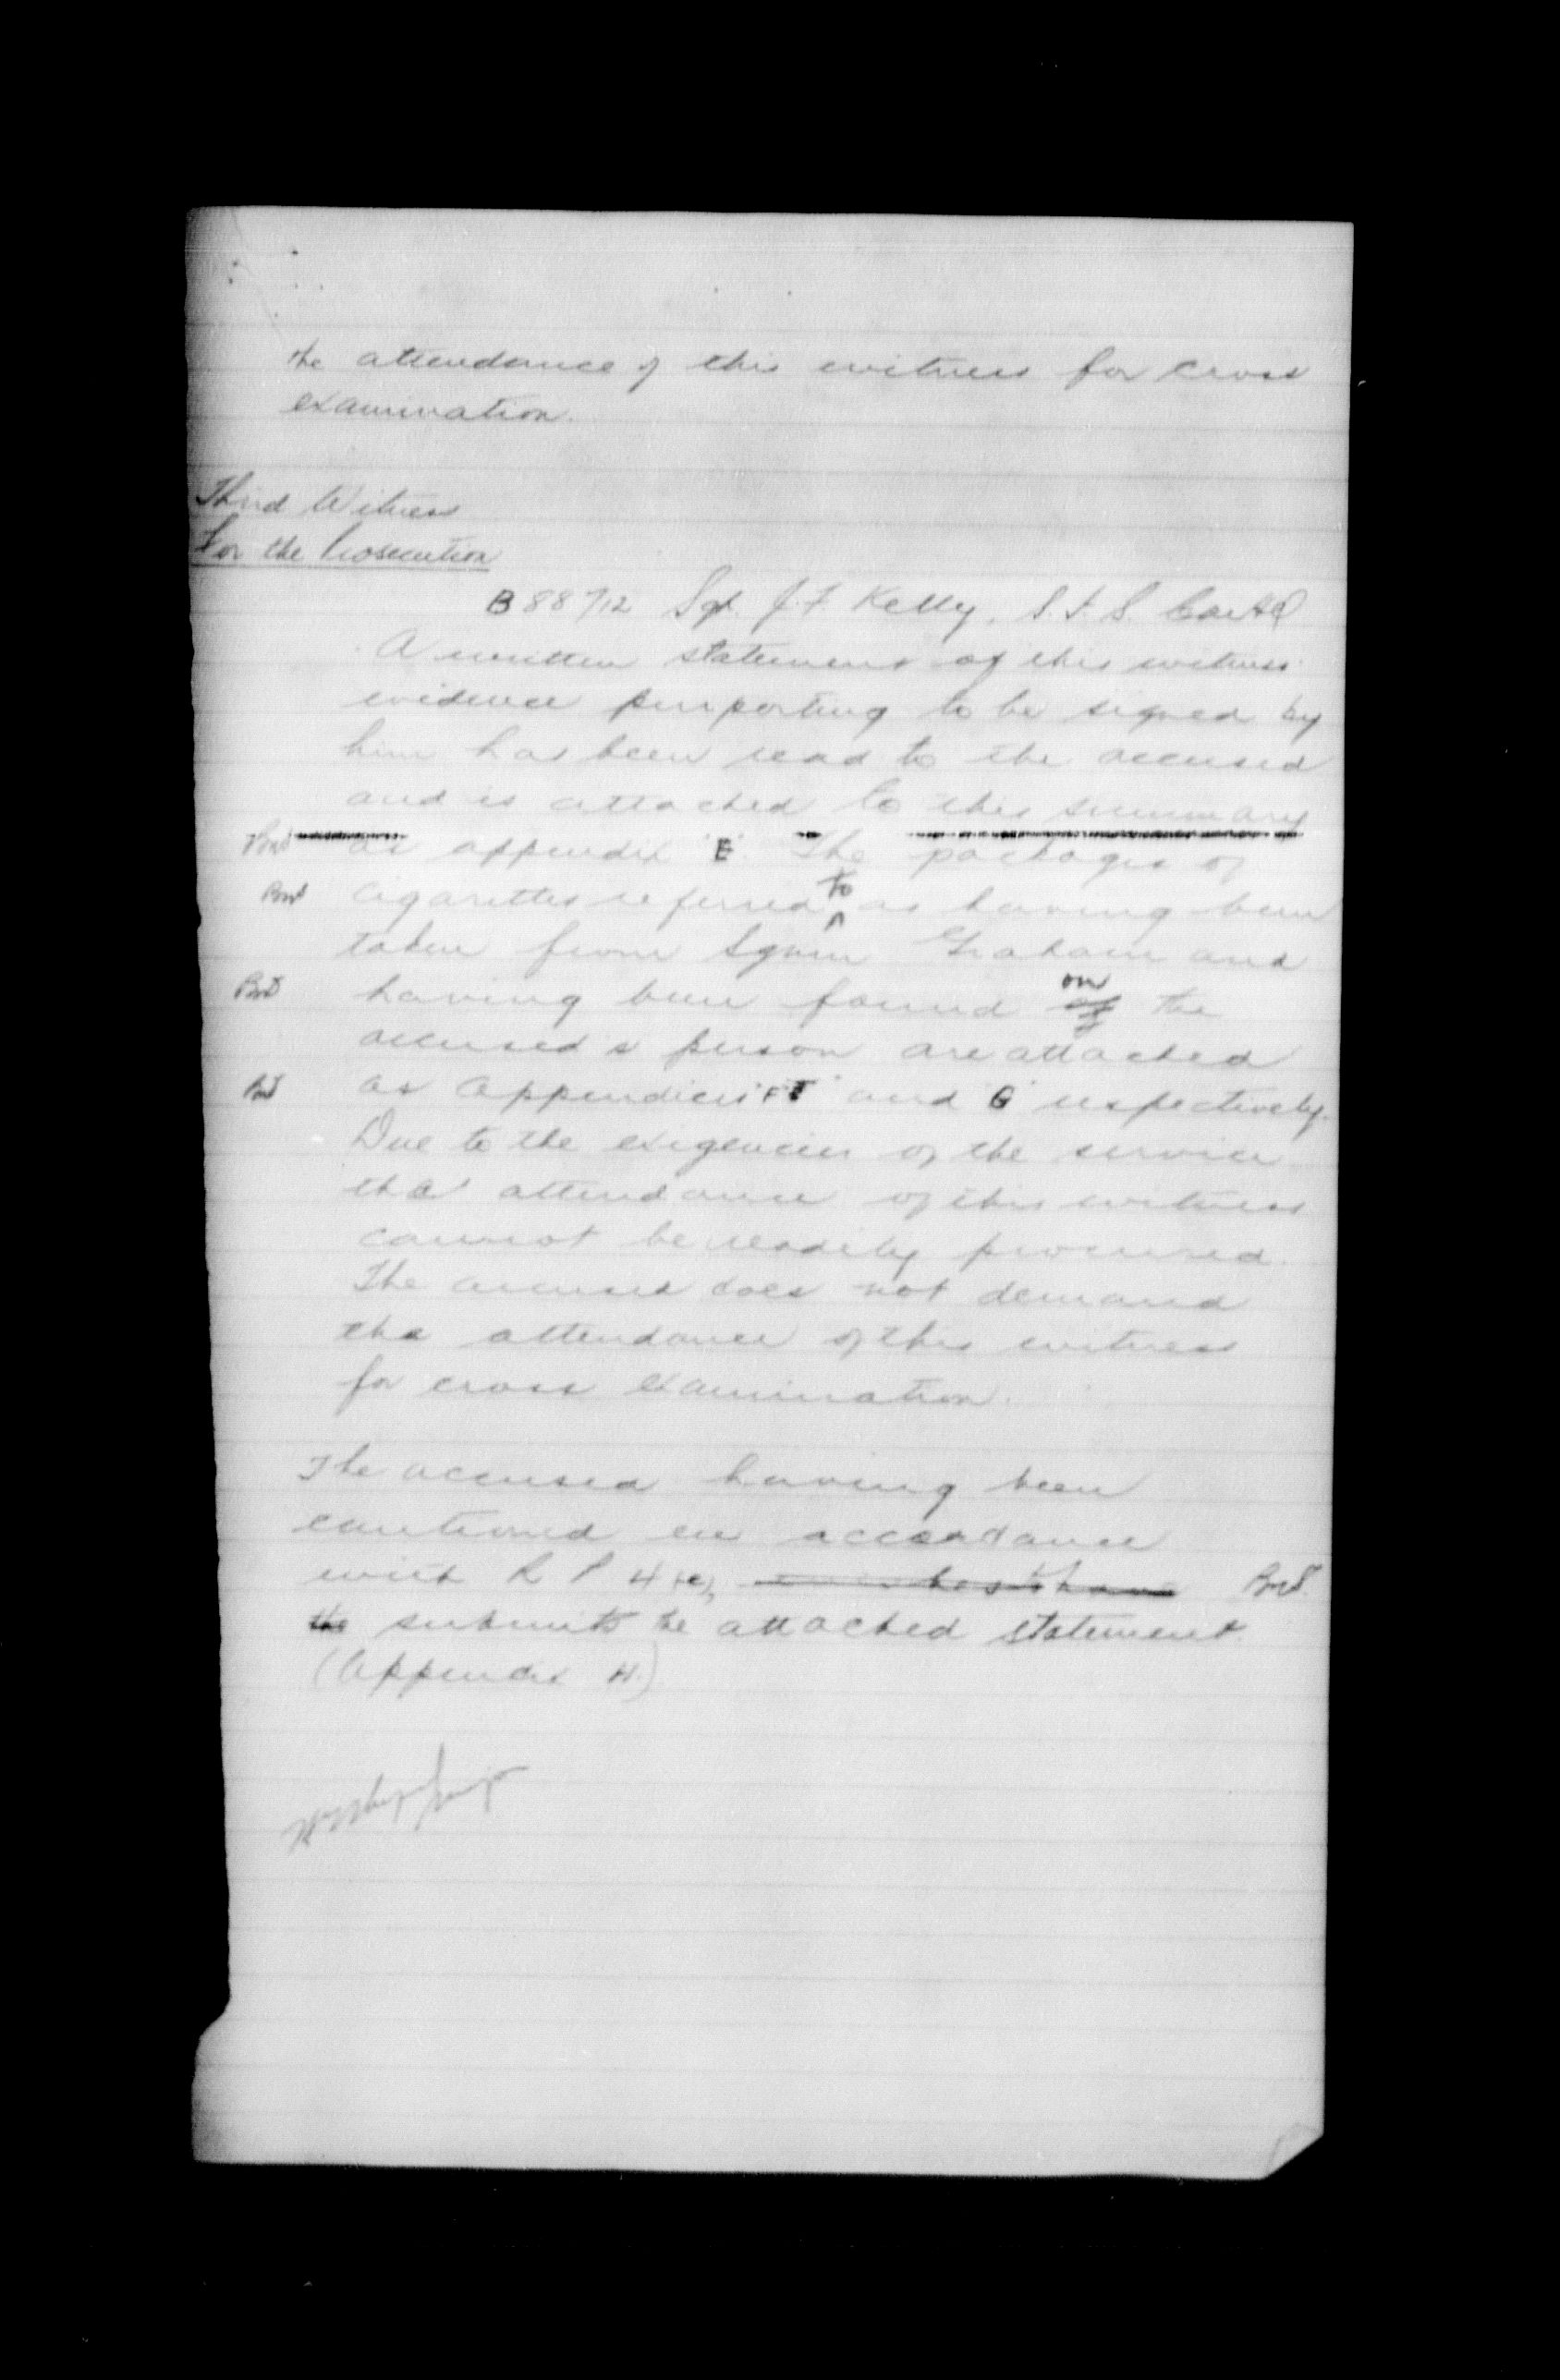 the attendance of this witness for cross
examination.
Third Witness
For the Prosecution
B 88712 Sgt. J.F Kelly, S.I.S.
A written statement of this witness'
evidence purporting to be signed by
him has been read to the accused
and is attached to this summary
as appendix "E". The packages of
cigarettes referred to as having been
taken from Sgmn Graham and
having been found on the
accused's person are attached
as appendicies "F" and "G" respectively.
Due to the exigencies of the service
the attendance of this witness
cannot be readily procured.
The accused does not demand
the attendance of this witness
for cross examination.
The accused having been
cautioned in accordance
with R P 4 (e),
the submits the attached statement.
(Appendix H.)